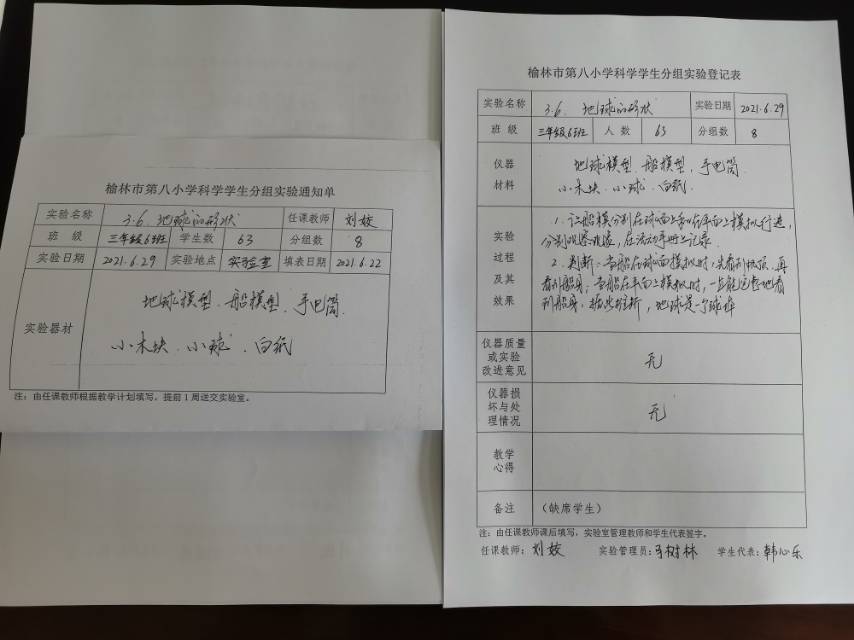 榆林市第八小学科学学生分组实验通知单
实验名称 3.6.地球的形状 任课教师 刘姣
班 级 三年级6班 学生数 63 分组数 8
实验日期 2021.6.29 实验地点 实验室 填表日期 2021.6.22
实验器材
地球模型、船模型、手电筒、
小木块、小球、白纸
注：由任课教师根据教学计划填写，提前1周送交实验室。
榆林市第八小学科学学生分组实验登记表
实验名称 3.6.地球的形状 实验日期 2021.6.29
班 级 三年级6班 人 数 63 分组数 8
仪器
材料
地球模型、船模型、手电筒、
小木块、小球、白纸
实验
过程
及其
效果
1.让船模分别在球面上和在平面上模拟行进，
分别观察现象，在活动手册上记录.
2.判断：当船在球面模拟时，先看到帆顶，再
看到船身；当船在平面上模拟时，一直能完整地看
到船身，推断，地球是一个球体
仪器质量
或实验
改进意见
无
仪器损
坏与处
理情况
无
教学
心得
备注 （缺席学生）
注：由任课教师课后填写，实验室管理教师和学生代表签字。
任课教师：刘姣 实验管理员：树林 学生代表：韩心乐